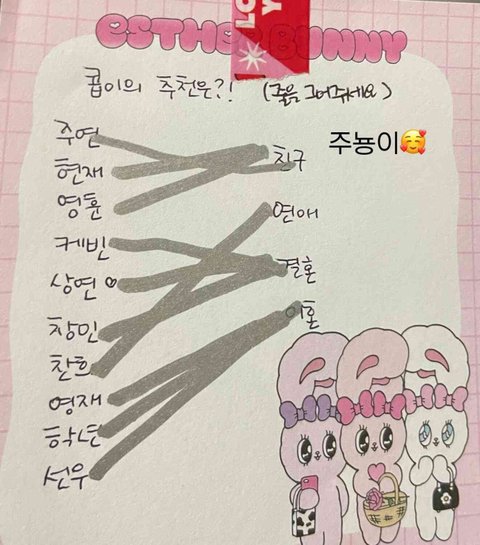 ESTHER BUNNY
콥이의 추천은?! (줄을 그어주세요)
주뇽이🥰
주연
현재
영훈
케빈
상연♡
창민
찬희
영재
학년
선우
친구
연애
결혼
이혼